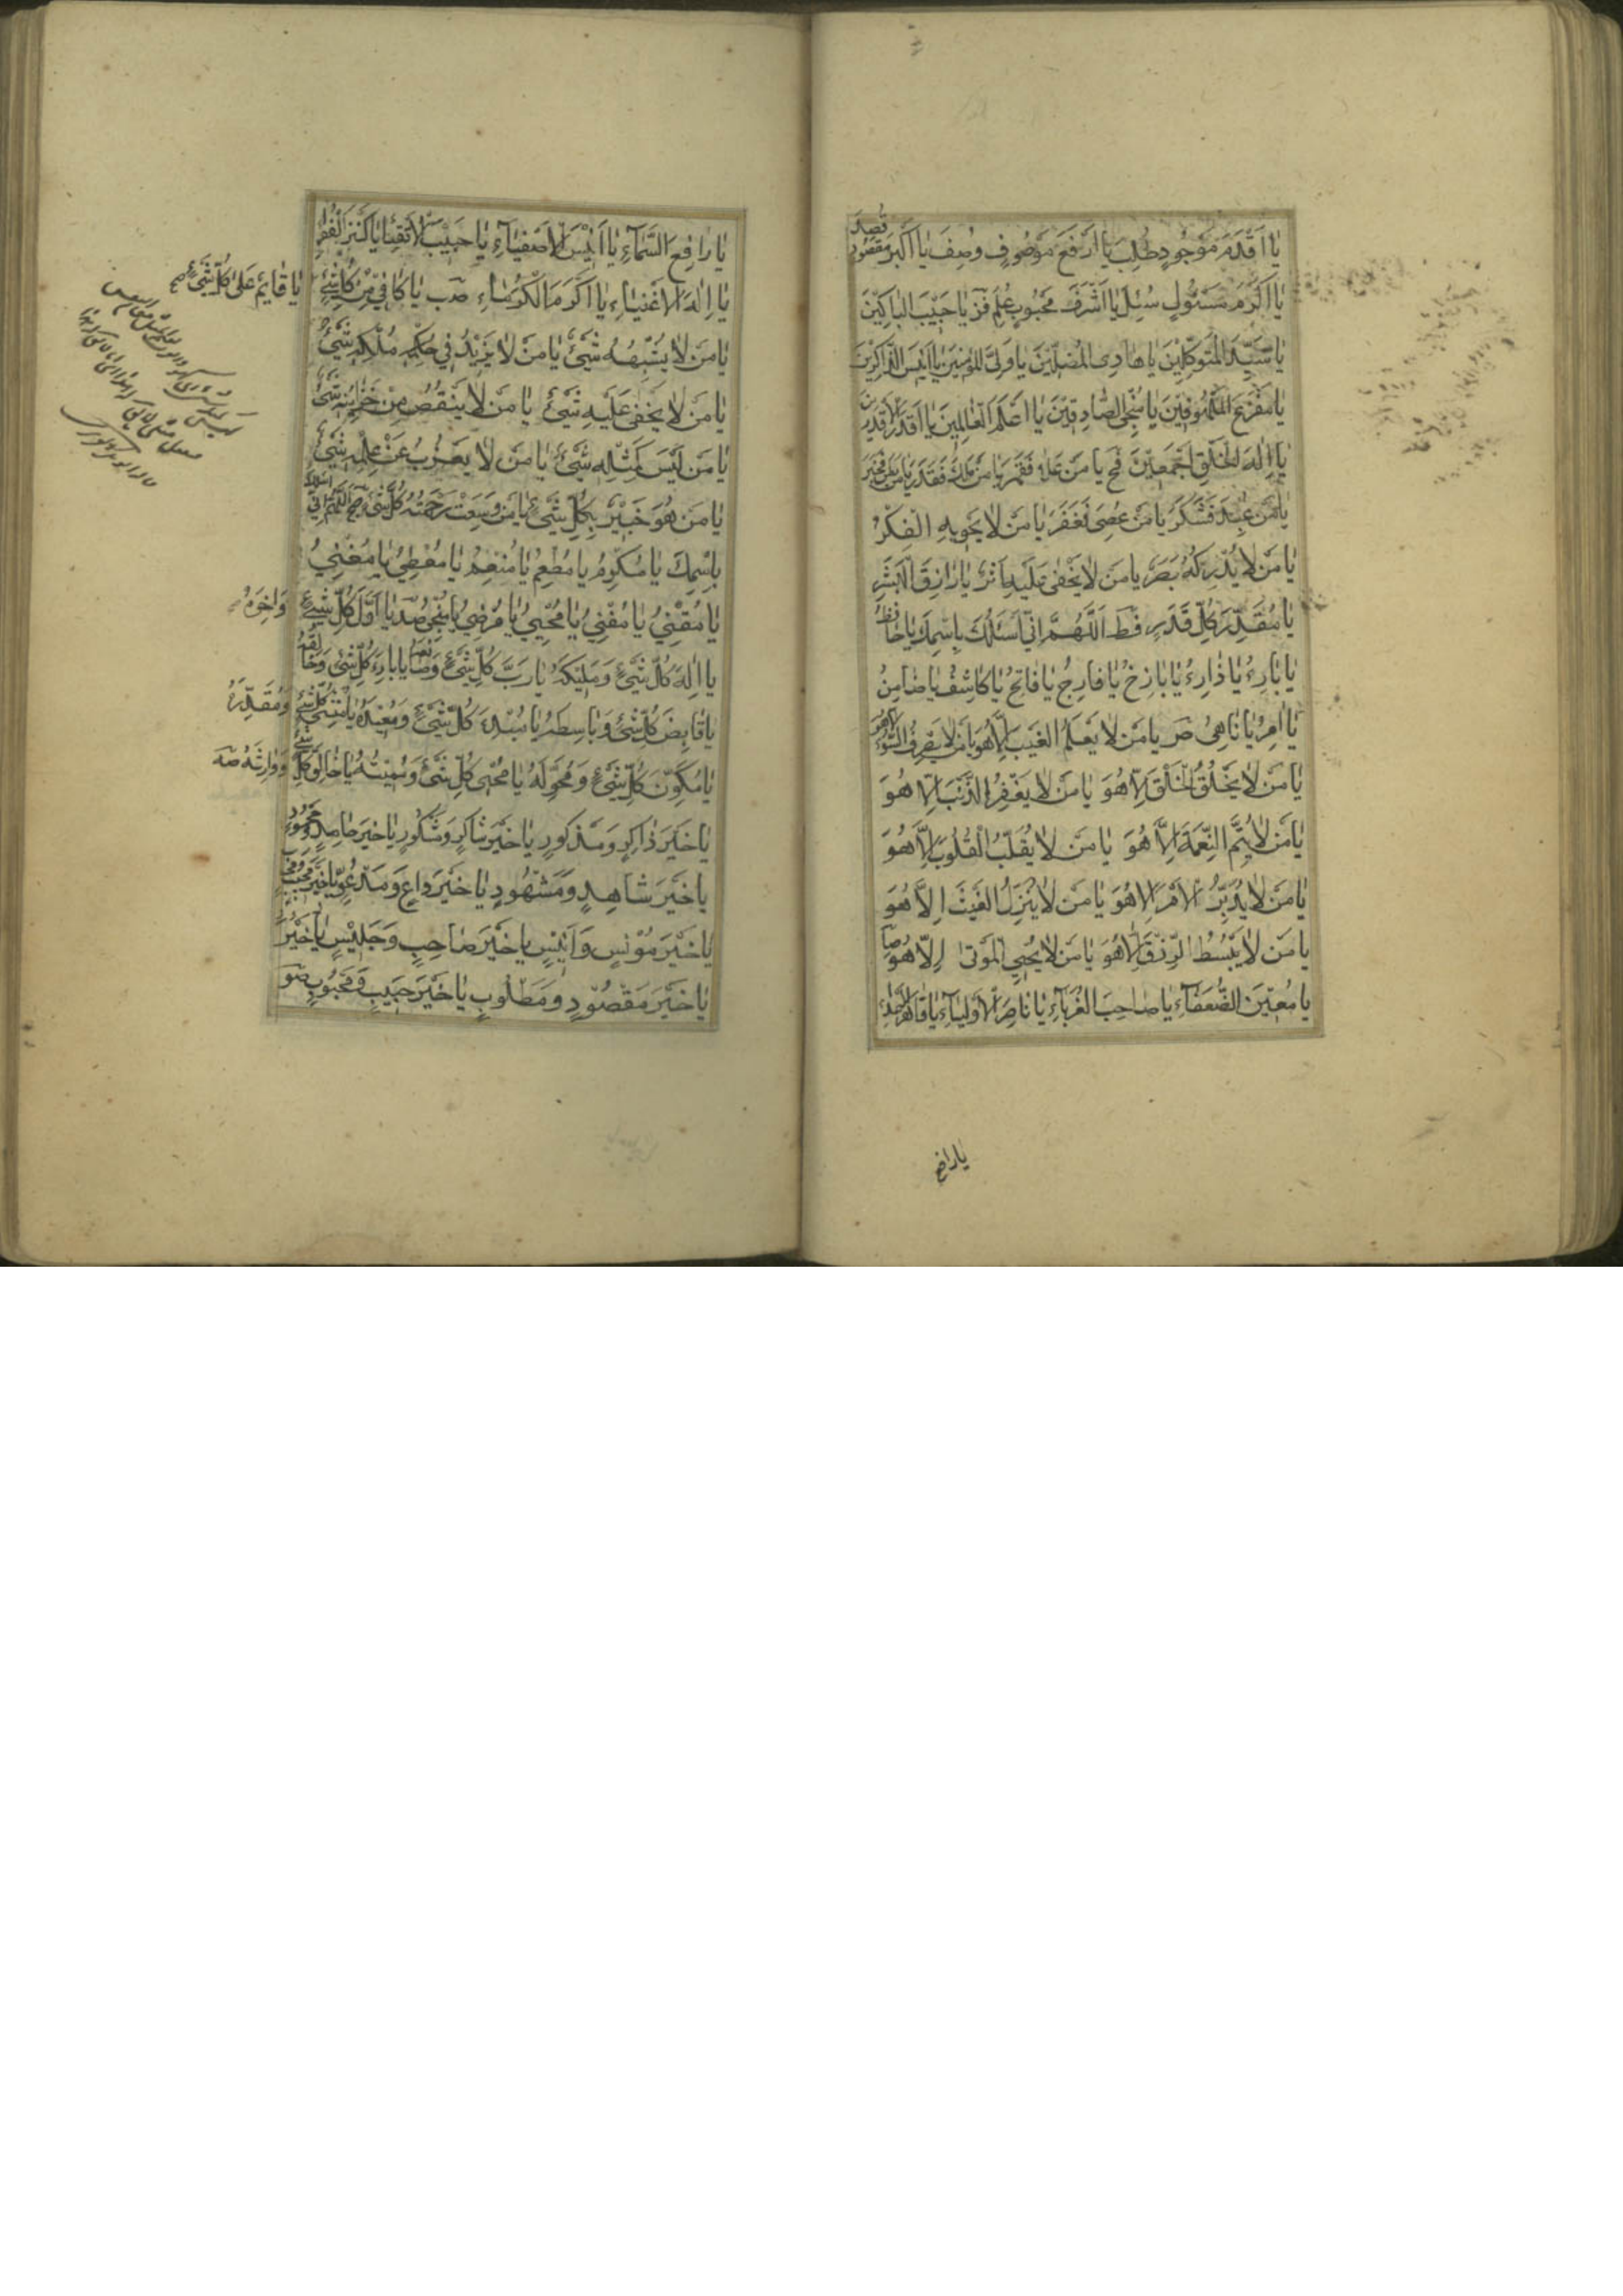 يا اقدم موجود طلب يا ارفع موصوف وصف يا اكبر مقصود قصد
يا اكرم مسئول سئل يا اشرف محبوب علم يا حبيب الباكين
يا سيد المتوكلين يا هادى المضلين يا ولى المؤمنين يا انيس الذاكرين
يا مفزع الملهوفين يا منجى الصادقين يا اقدر القادرين يا اعلم العالمين
يا اله الخلق اجمعين يا من علا فقهر يا من ملك فقدر يا من بطن فخبر
يا من عبد فشكر يا من عصى فغفر يا من لا يحويه الفكر
يا من لا يدركه بصر يا من لا يخفى عليه اثر يا رازق البشر
يا مقدر كل قدر اللهم انى اسئلك باسمك يا حافظ
يا بارئ يا ذارئ يا باذخ يا فارج يا فاتح يا كاشف يا ضامن
يا امر يا ناهى يا من لا يعلم الغيب الا هو يا من لا يصرف السوء الا هو
يا من لا يخلق الخلق الا هو يا من لا يغفر الذنب الا هو
يا من لا يتم النعمة الا هو يا من لا يقلب القلوب الا هو
يا من لا يدبر الامر الا هو يا من لا ينزل الغيث الا هو
يا من لا يبسط الرزق الا هو يا من لا يحيى الموتى الا هو
يا معين الضعفاء يا صاحب الغرباء يا ناصر الاولياء يا قاهر الاعداء
يا رافع
يا رافع السماء يا انيس الاصفياء يا حبيب الاتقيا يا كنز الفقرا
يا اله الاغنياء يا اكرم الكرماء يا كافى من كل شئ
يا قايم على كل شئ
يا من لا يشبهه شئ يا من لا يزيد فى ملكه شئ
يا من لا يخفى عليه شئ يا من لا ينقص من خزاينه شئ
يا من ليس كمثله شئ يا من لا يعزب عن علمه شئ
يا من هو خبير بكل شئ يا من وسعت رحمته كل شئ اللهم انى اسئلك
باسمك يا مكرم يا مطعم يا منعم يا معطى يا مغنى
يا مقنى يا مفنى يا محيى يا مرضى يا منجى يا اول كل شئ
واخره
يا اله كل شئ ومليكه يا رب كل شئ وصانعه يا بارئ كل شئ وخالقه
يا قابض كل شئ وباسطه يا مبدئ كل شئ ومعيده يا منشئ كل شئ
ومقدره
يا مكون كل شئ ومحوله يا محيى كل شئ ومميته يا خالق كل شئ
ووارثه
يا خير ذاكر ومذكور يا خير شاكر وشكور يا خير حامد ومحمود
يا خير شاهد ومشهود يا خير داع ومدعو يا خير مجيب ومجاب
يا خير مونس وانيس يا خير صاحب وجليس يا خير
يا خير مقصود ومطلوب يا خير حبيب ومحبوب